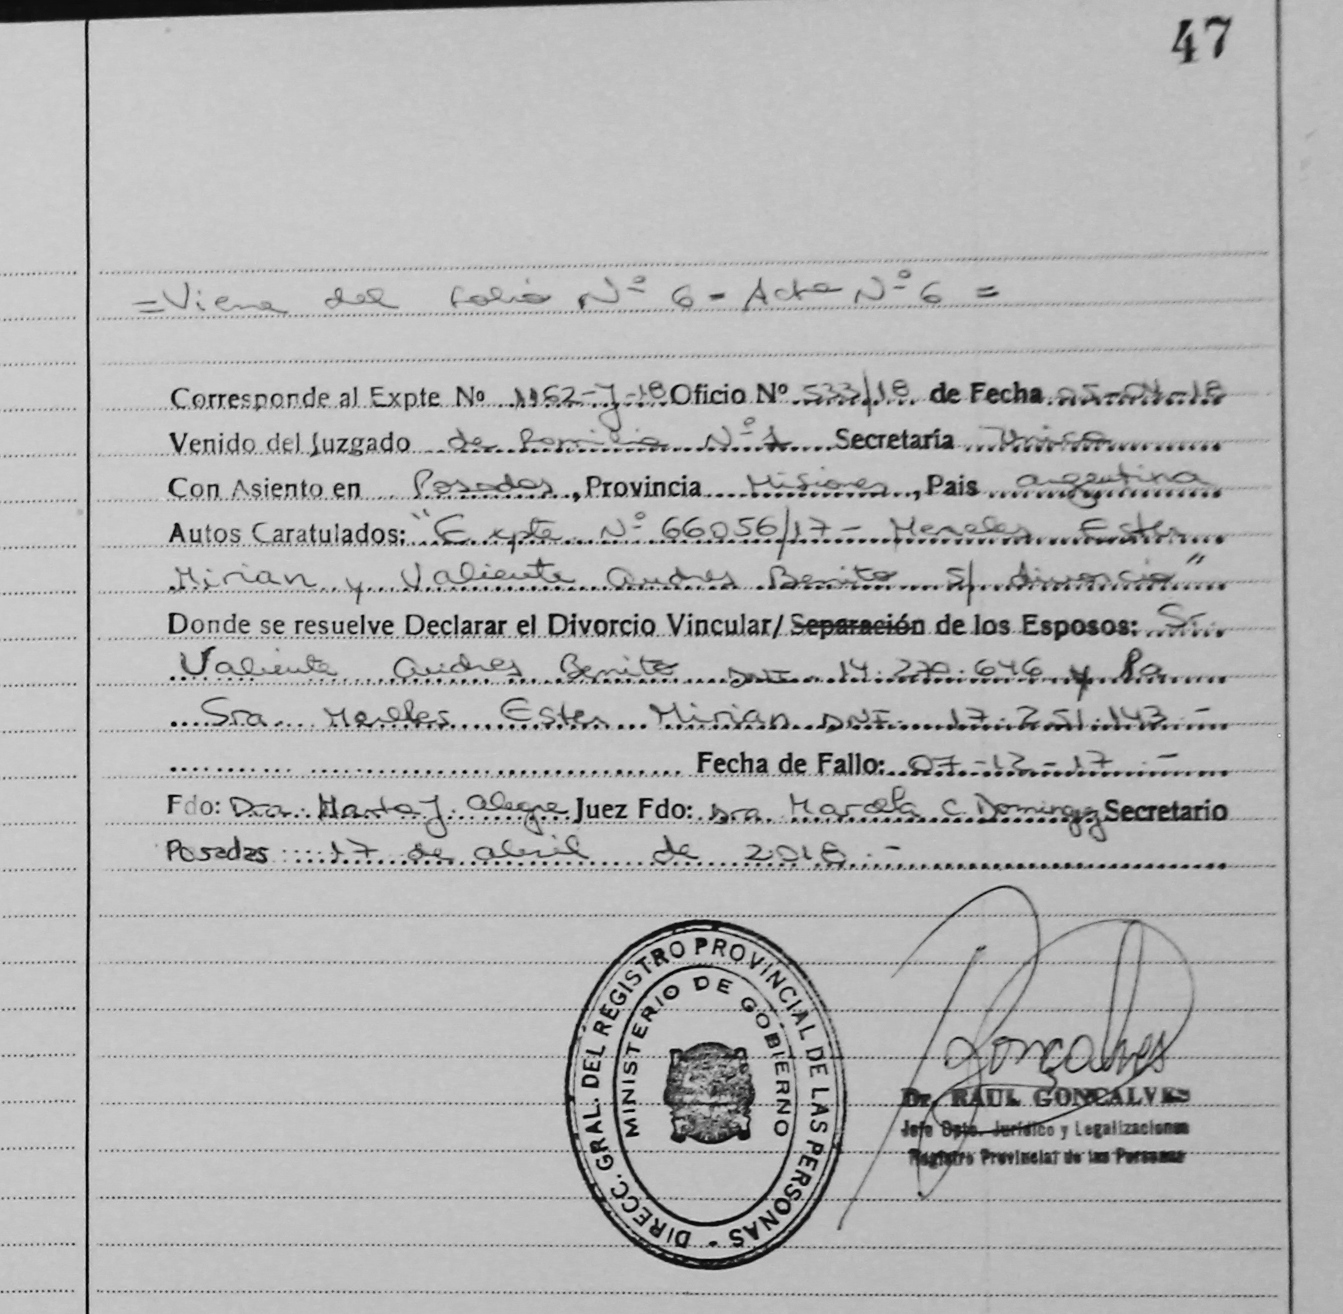 47
=Viene del folio Nº 6 - Acta Nº 6 =
Corresponde al Expte Nº 1162-J-18 Oficio Nº 533/18 de Fecha 05-04-18
Venido del Juzgado de Familia Nº 1 Secretaría Única
Con Asiento en Posadas, Provincia Misiones, Pais argentina
Autos Caratulados: "Expte Nº 66056/17 - Mereles Ester
Mirian y Valiente Andres Benito S/ divorcio"
Donde se resuelve Declarar el Divorcio Vincular/ Separación de los Esposos: Sr.
Valiente Andres Benito DNI 14.270.646 y la
Sra. Mereles Ester Mirian DNI. 17.251.143 -
Fecha de Fallo: 07-12-17 -
Fdo: Dra. Marta J. Alegre Juez Fdo: Dra. Marcela C. Dominguez Secretario
Posadas: 17 de abril de 2018 -
DIRECC. GRAL. DEL REGISTRO PROVINCIAL DE LAS PERSONAS -
MINISTERIO DE GOBIERNO
Gonçalves
Dr. RAUL GONÇALVES
Jefe Dpto. Jurídico y Legalizaciones
Registro Provincial de las Personas